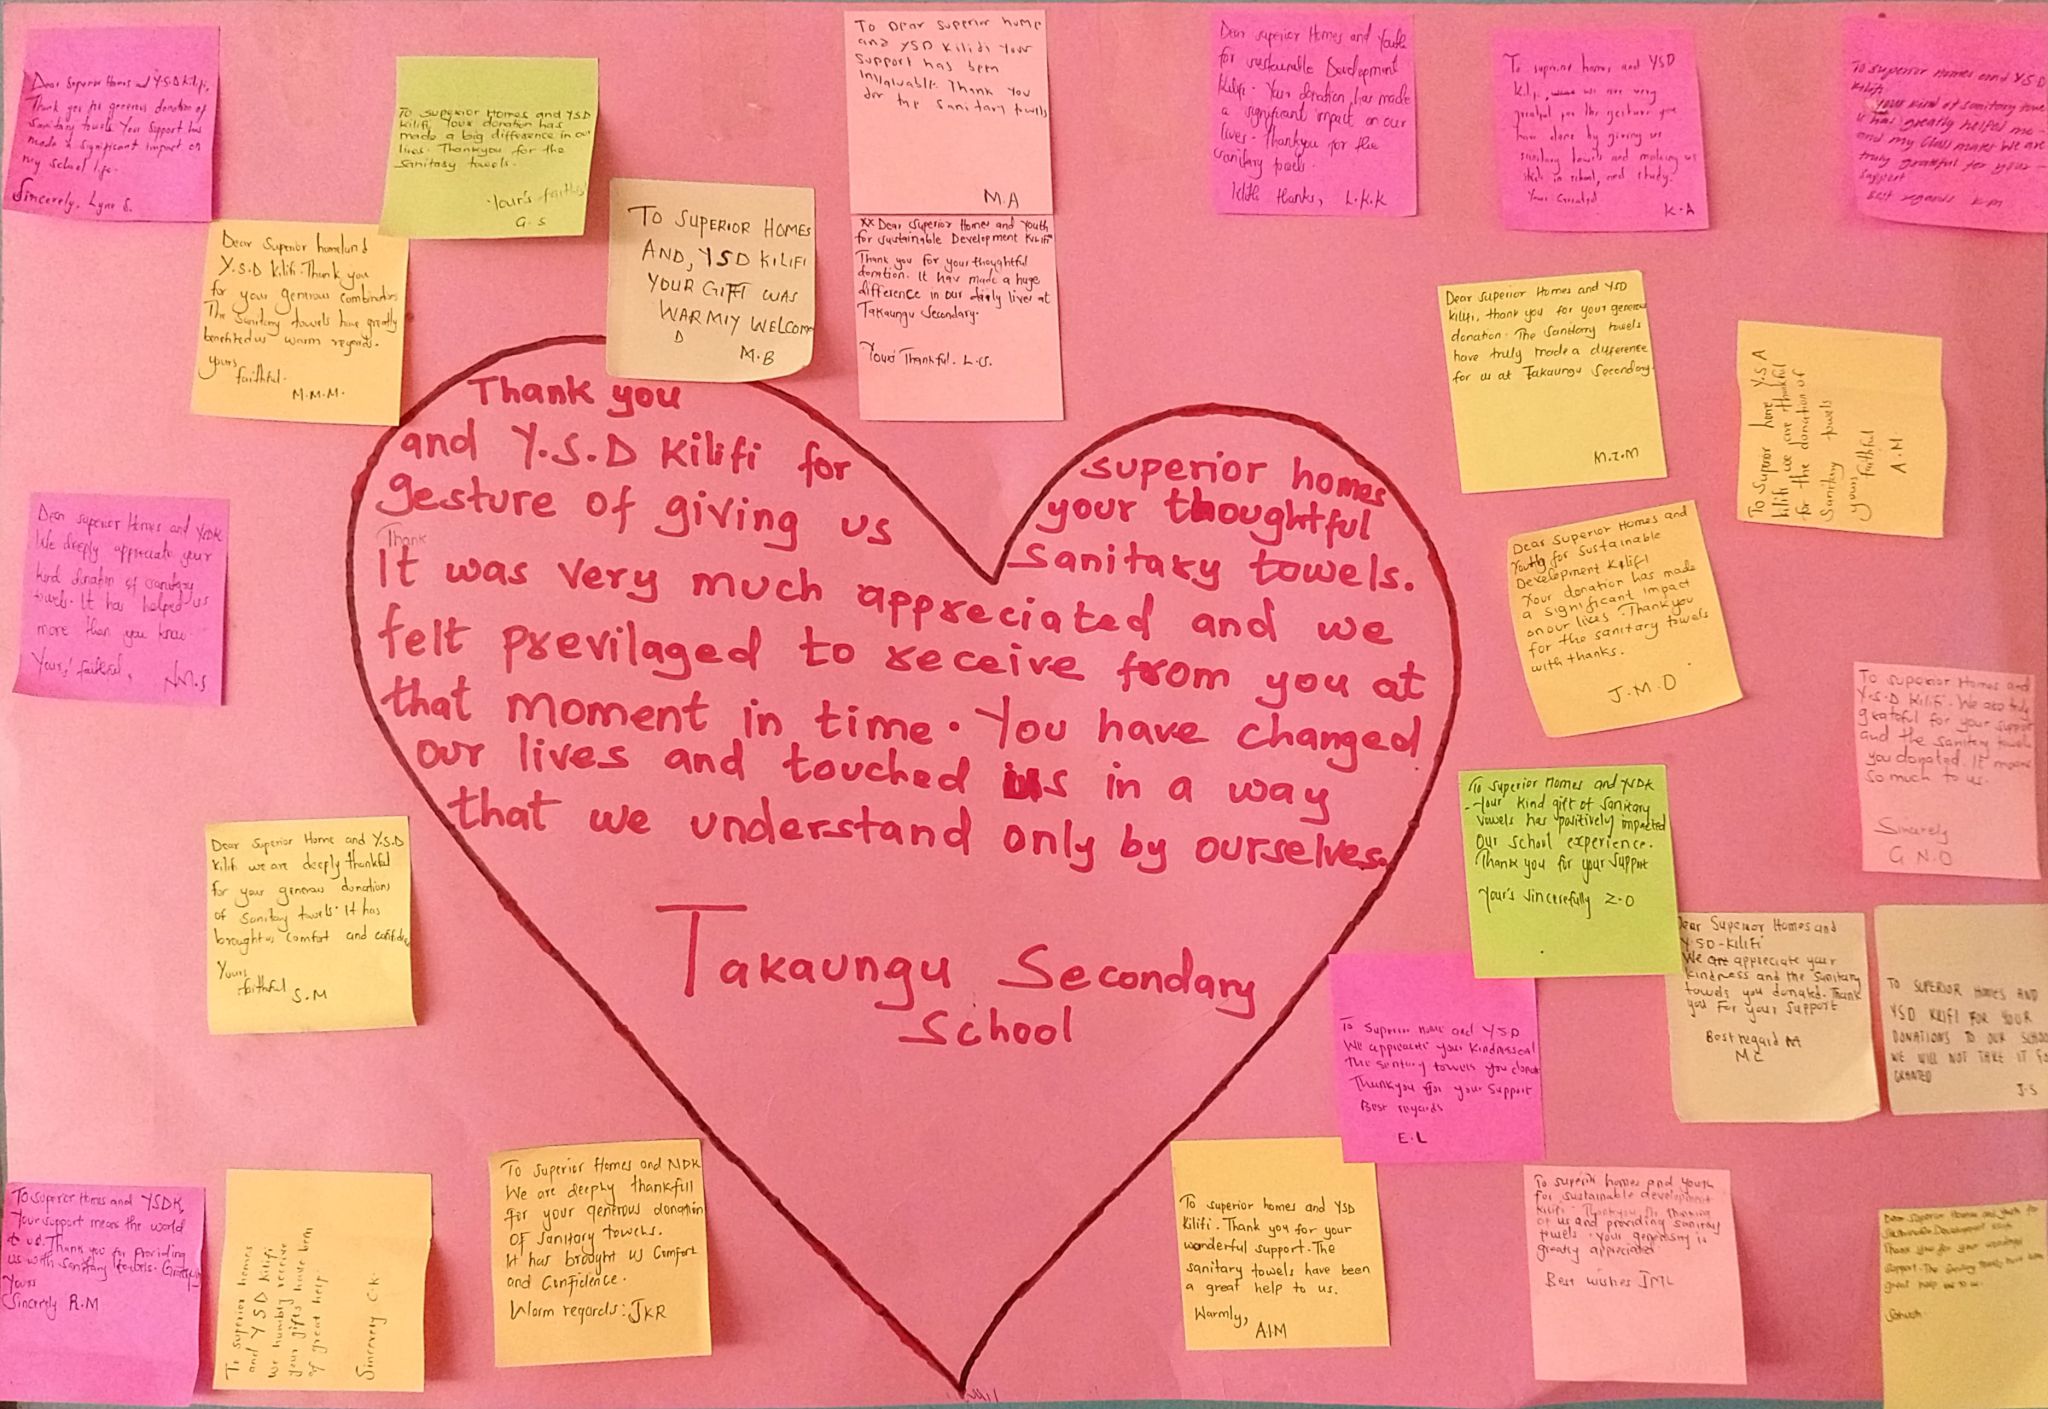 Dear Superior Homes and Y.S.D Kilifi,
Thank you for generous donation of
sanitary towels Your support has
made a significant impact on
my school life.
Sincerely, Lyne S.
To Superior Homes and YSD
kilifi, Your donation has
made a big difference in our
lives. Thankyou for the
Sanitary towels.
Your's faithful
G.S
To Dear Superior home
and YSD Kilifi Your
Support has been
invaluable. Thank You
for the Sanitary towels
M.A
Dear Superior Homes and Youth
for sustainable Development
Kilifi. Your donation has made
a significant impact on our
lives. Thankyou for the
sanitary towels.
With thanks, L.K.K
To superior homes and YSD
we are very
grateful for the gesture you
have done by giving us
sanitary towels and making us
stick in school, and study.
K.A
To superior Homes and YSD
Kilifi
Your kind of sanitary towe
it has greatly helped me-
and my Class mates We are
truly grateful for your-
support
Best regards K.M
Dear Superior
Y.S.D Kilifi. Thank you
for your generous
The sanitary towels have greatly
benefited us warm regards.
yours
faithful.
M.M.M.
TO SUPERIOR HOMES
AND, YSD KILIFI
YOUR GIFT WAS
WARMIY WELCOME
D
M.B
XX Dear Superior Homes and Youth
for Sustainable Development KILIFI
Thank you for your thoughtful
donation. It hav made a huge
difference in our daily lives at
Takaungu Secondary.
Yours' Thankful. L.S.
Dear Superior Homes and YSD
kilifi, thank you for your generous
donation. The sanitary towels
have truly made a difference
for us at Takaungu Secondary.
M.Z.M
To Superior home Y.S.A
kilifi we are thankful
for the donation of
Sanitary towels
yours faithful
A.M.
Thank you superior homes
and Y.S.D Kilifi for your thoughtful
gesture of giving us sanitary towels.
Thank
It was very much appreciated and we
felt previlaged to receive from you at
that moment in time. You have changed
our lives and touched us in a way
that we understand only by ourselves.
Takaungu Secondary
School
Dear superior Homes and YSDK
We deeply appreciate your
kind donation of sanitary
towels. It has helped us
more than you know.
Yours' faithful,
N.M.S
Dear Superior Homes and
Youth for Sustainable
Development Kilifi
Your donation has made
a significant impact
on our lives Thank you
for the sanitary towels
with thanks.
J.M.D
To superior Homes and
Y.S.D Kilifi. We are truly
grateful for your support
and the sanitary towels
you donated. It means
so much to us.
Sincerely
G.N.O
Dear Superior Home and Y.S.D
Kilifi we are deeply thankful
for your generous donations
of sanitary towels. It has
brought us comfort and
Yours
faithful S.M
To Superior Homes and YSDK
-Your kind gift of sanitary
vowels has positively impacted
our school experience.
Thank you for your support
Your's sincerefully Z.O
Dear Superior Homes and
Y.SD-Kilifi
We are appreciate your
kindness and the Sanitary
towels you donated. Thank
you for your support
Best regard M
MC
TO SUPERIOR HOMES AND
YSD KILIFI FOR YOUR
DONATIONS TO OUR SCHOO
WE WILL NOT TAKE IT FO
GRANTED
J.S
To Superior home and YSD
We appreciate your kindness
The sanitary towels you
Thankyou for your support
Best regards
E.L
To superior Homes and YSDK,
Your support means the world
to us. Thank you for providing
us with sanitary towels.
Yours
Sincerely R.M
To Superior homes
and YSD kilifi
We humbly receive
your gifts have been
of great help.
Sincerely C.K.
To Superior Homes and NDK
We are deephy thankfull
for your generous donation
OF Sanitary towels.
It has brought us Comfort
and Confidence.
Warm regards: JKR
To superior homes and YSD
Kilifi. Thank you for your
wonderful support. The
sanitary towels have been
a great help to us.
Warmly,
AIM
To superior homes and youth
for sustainable development
kilifi. Thankyou for thinking
of us and providing sanitary
towels. Your generosity is
greatly appreciated
Best wishes JML
Dear Superior Homes and youth for
Sustainable Development
Thank you for your
support. The sanitary towels have been
great help to us.